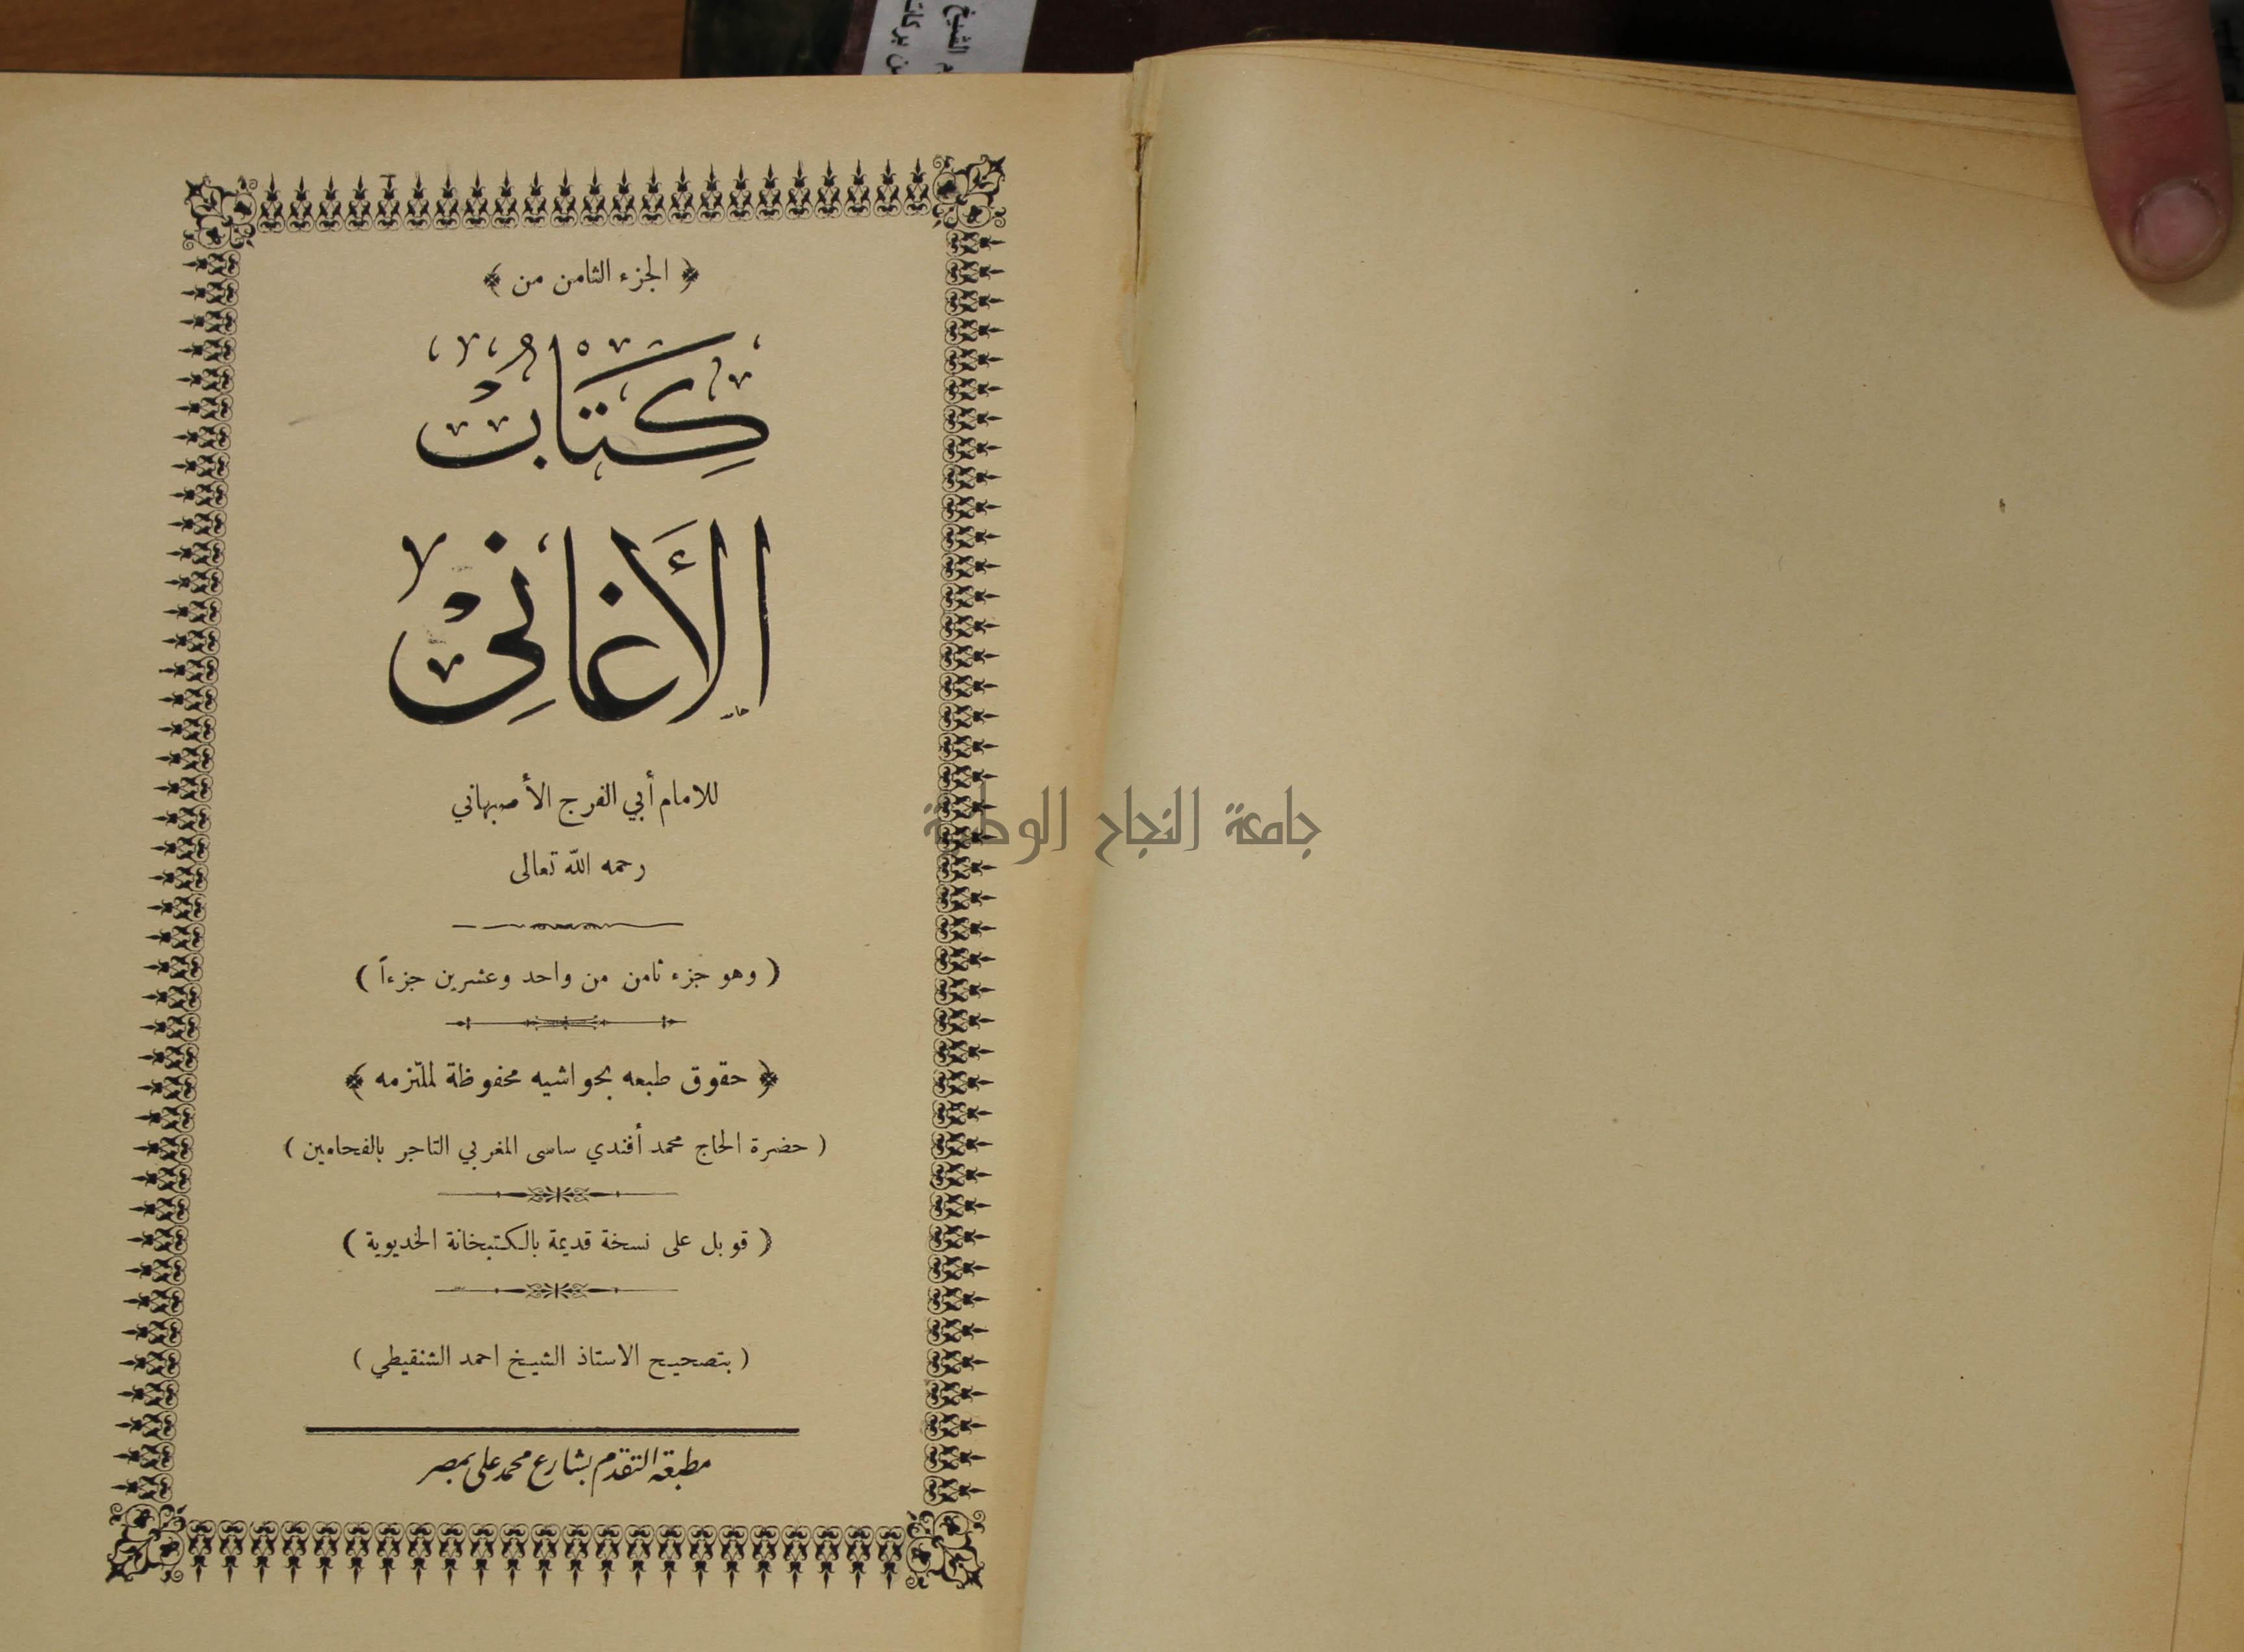 ﴿ الجزء الثامن من ﴾
كِتَابُ
الأَغَانِيْ
للامام أبي الفرج الأصبهاني
رحمه الله تعالى
( وهو جزء ثامن من واحد وعشرين جزءاً )
﴿ حقوق طبعه بحواشيه محفوظة لملتزمه ﴾
( حضرة الحاج محمد أفندي ساسى المغربي التاجر بالفحامين )
( قوبل على نسخة قديمة بالكتبخانة الخديوية )
( بتصحيح الاستاذ الشيخ احمد الشنقيطي )
مطبعة التقدم بشارع محمد على بمصر
جامعة النجاح الوطنية
الشيخ
بركات